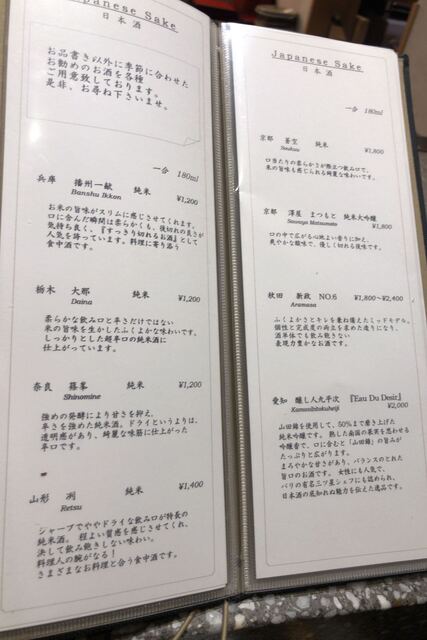 Japanese Sake
日本酒
お品書き以外に季節に合わせた
お勧めのお酒を各種
ご用意致しております。
是非、お尋ね下さいませ。
一合 180ml
兵庫 播州一献 純米 ¥1,200
Banshu Ikkon
お米の旨味がスリムに感じさせてくれます。
口に含んだ瞬間は柔らかくも、後切れの良さが
気持ち良く、『すっきり切れるお酒』として
人気を誇っています。料理に寄り添う
食中酒です。
栃木 大那 純米 ¥1,200
Daina
柔らかな飲み口と辛さだけではない
米の旨味を生かしたふくよかな味わいです。
しっかりとした超辛口の純米酒に
仕上がっています。
奈良 篠峯 純米 ¥1,200
Shinomine
強めの発酵により甘さを抑え、
辛さを強めた純米酒。ドライというよりは、
透明感があり、綺麗な味筋に仕上がった
辛口です。
山形 冽 純米 ¥1,400
Retsu
シャープでややドライな飲み口が特長の
純米酒。 程よい質感を感じさせてくれ、
決して飲み飽きしない味わい。
料理人の腕がなる!
さまざまなお料理と合う食中酒です。
Japanese Sake
日本酒
一合 180ml
京都 蒼空 純米 ¥1,800
Soukuu
口当たりの柔らかさが際立つ飲み口で、
米の旨味も感じられる綺麗な味わいです。
京都 澤屋 まつもと 純米大吟醸 ¥1,800
Sawaya Matsumoto
口の中で広がる心地よい香りに加え、
爽やかな酸味で、優しく切れる後味です。
秋田 新政 NO.6 ¥1,800～¥2,400
Aramasa
ふくよかさとキレを兼ね備えたミッドモデル。
個性と完成度の両立を求めた造りになり、
酒単体でも飲み飽きない
表現力豊かなお酒です。
愛知 醸し人九平次 『Eau Du Desir』
Kamoshibitokuheiji ¥2,000
山田錦を使用して、50%まで磨き上げた
純米吟醸です。 熟した南国の果実を思わせる
吟醸香で、口に含むと「山田錦」の旨みが
たっぷりと広がります。
まろやかな甘さがあり、バランスのとれた
旨口のお酒です。 女性にも人気で、
パリの有名三ツ星シェフにも認められ、
日本酒の底知れぬ魅力を伝えた逸品です。